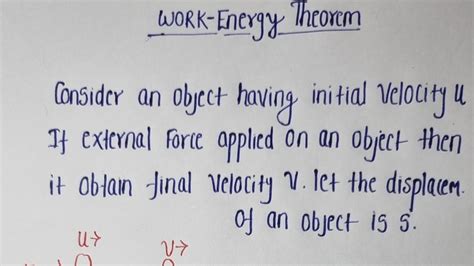 WORK-Energy Theorem
Consider an object having initial velocity u
If external Force applied on an object then
it obtain final velocity v. let the displacem.
Of an object is s.
u→ v→